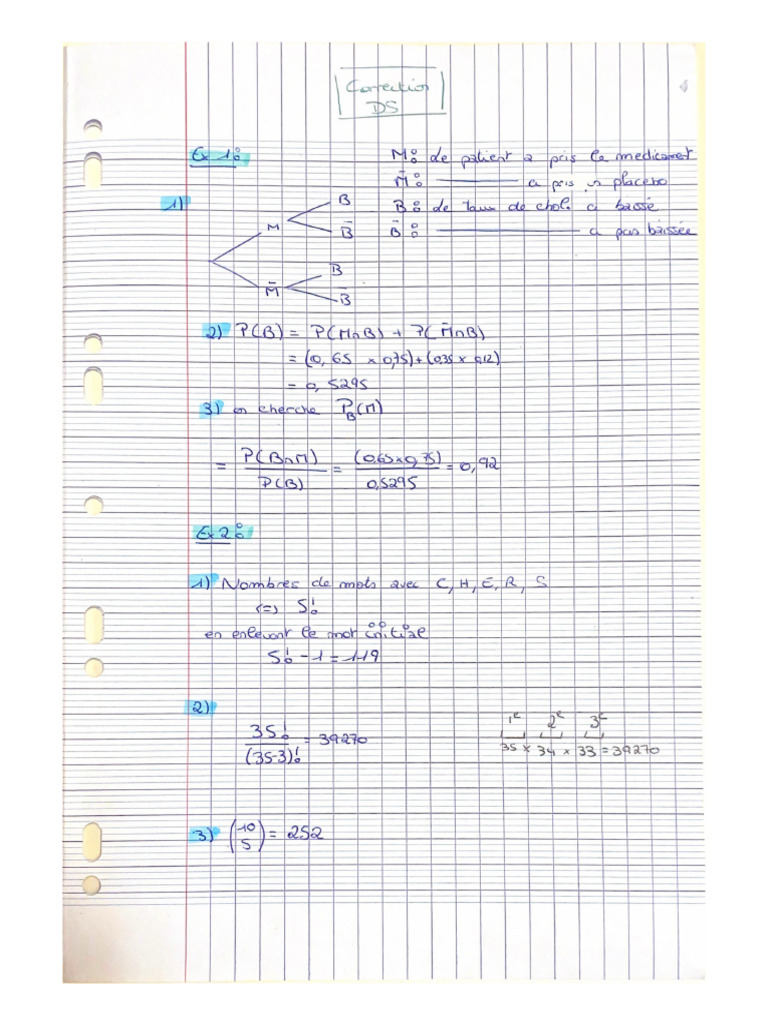 Correction
DS
Ex 1:
M: de patient a pris le medicamet
M̄: ———— a pris un placebo
B: de taux de chol. a baissé
B̄: ———————— a pas baissée
1)
B
M
B̄
B
M̄
B̄
2) P(B) = P(M∩B) + P(M̄∩B)
= (0,65 × 0,75) + (0,35 × 0,12)
= 0,5295
3) on cherche P_B(M)
= P(B∩M) / P(B) = (0,65×0,75) / 0,5295 = 0,92
Ex 2:
1) Nombres de mots avec C, H, E, R, S
(=) 5!
en enlevant le mot initial
5! - 1 = 119
2)
35! / (35-3)! = 39270
1e 2e 3e
35 × 34 × 33 = 39270
3) (10 5) = 252